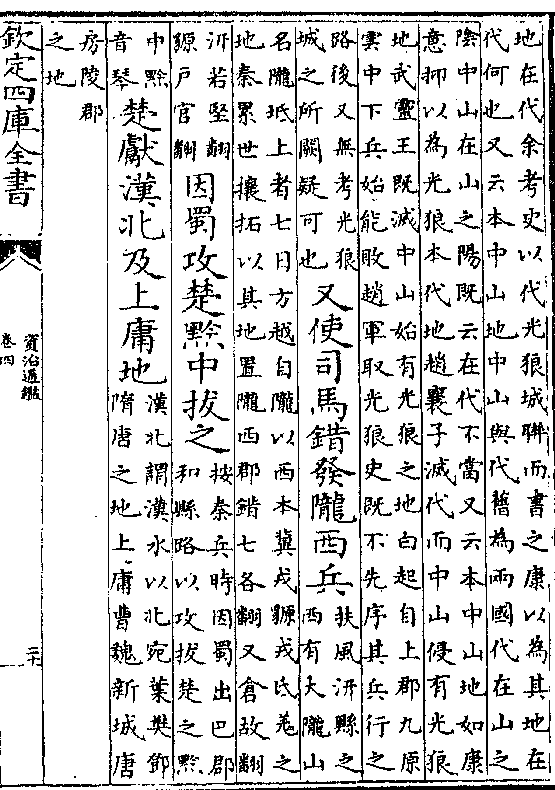 地在代余考史以代光狼城聯而書之康以為其地在
代何也又云本中山地中山與代舊為兩國代在山之
陰中山在山之陽既云在代不當又云本中山地如康
意抑以為光狼本代地趙襄子滅代而中山侵有光狼
地武靈王既滅中山始有光狼之地白起自上郡九原
雲中下兵始能敗趙軍取光狼史既不先序其兵行之
路後又無考光狼
城之所闕疑可也
又使司馬錯發隴西兵
扶風汧縣之
西有大隴山
名隴坻上者七日方越自隴以西本冀戎豲戎氐羌之
地秦累世攘拓以其地置隴西郡錯七各翻又倉故翻
汧若堅翻
豲戸官翻
因蜀攻楚黔中拔之
按秦兵時因蜀出巴郡
和縣路以攻拔楚之黔
中黔
音琴
楚獻漢北及上庸地
漢北謂漢水以北宛葉樊鄧
隋唐之地上庸曹魏新城唐
房陵郡
之地
欽定四庫全書
資治通鑑
卷四